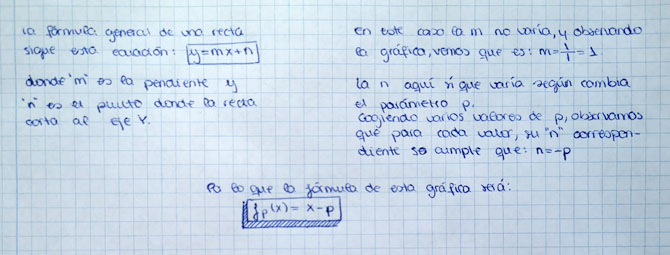 la fórmula general de una recta
sigue esta ecuación: y=mx+n
donde 'm' es la pendiente y
'n' es el punto donde la recta
corta al eje Y.
en este caso la m no varía, y observando
la gráfica, vemos que es: m=1/1=1
la n aquí sí que varía según cambia
el parámetro p.
Cogiendo varios valores de p, observamos
que para cada valor, su "n" correspon-
diente se cumple que: n=-p
Po lo que la fórmula de esta gráfica será:
fp(x) = x-p